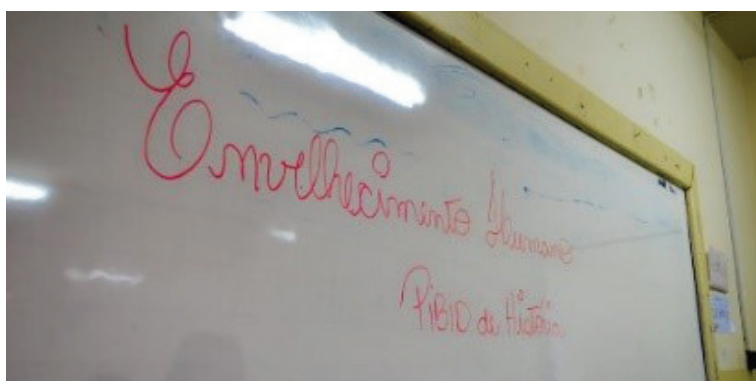 Envelhecimento Humano
PIBID de História